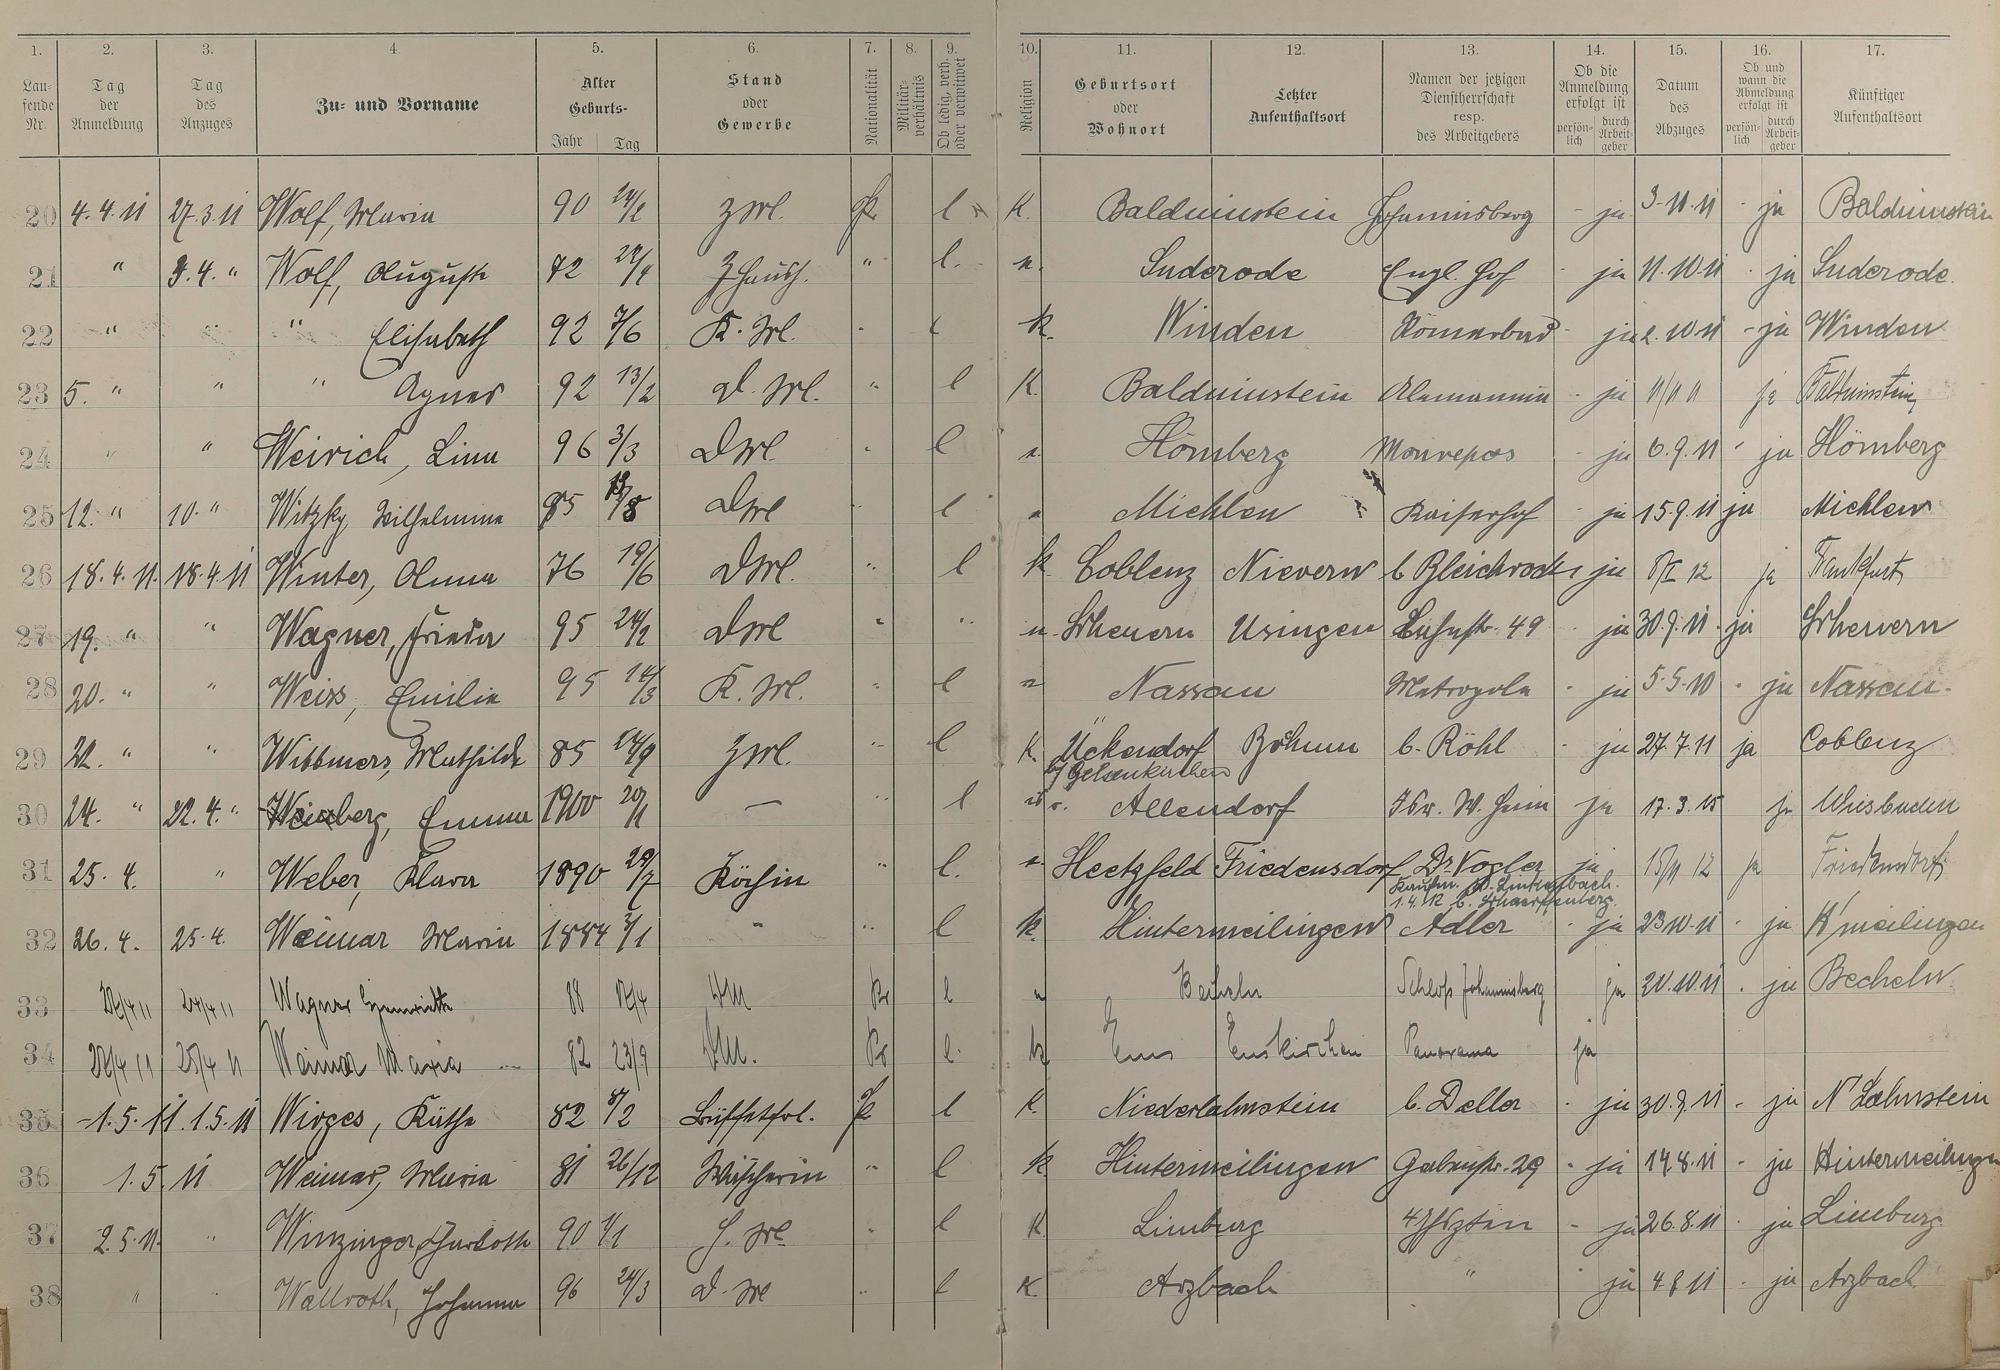 1. 2. 3. 4 5. 6. 7. 8. 9. 10. 11. 12. 13. 14. 15. 16. 17.
Laufende Nr. Tag der Anmeldung Tag des Anzuges Zu- und Vorname Alter Geburts- Jahr Tag Stand oder Gewerbe Nationalität Militärverhältnis Ob ledig, verh. oder verwitwet Religion Geburtsort oder Wohnort Letzter Aufenthaltsort Namen der jetzigen Dienstherrschaft resp. des Arbeitgebers Ob die Anmeldung erfolgt ist persönlich durch Arbeitgeber Datum des Abzuges Ob und wann die Abmeldung erfolgt ist persönlich durch Arbeitgeber Künftiger Aufenthaltsort
20 4.4.11 27.3.11 Wolf, Maria 90 Zml. Pr. l K. Balduinstein Johannisberg - ja 3.11.11 - ja Balduinstein
21 " 3.4. " Wolf, August 72 " l. Suderode Engl. Hof - ja 11.10.11 - ja Suderode
22 " " " Elisabeth 92 7/6 K. Ml. " l K. Winden Römerbad - ja 2.10.11 - ja Winden
23 5. " " " Agnes 92 13/2 D. Ml. " l K. Balduinstein Alemannia - ja ja Balduinstein
24 " " Weirich, Lina 96 3/3 DMl " l Hömberg Monrepos - ja 6.9.11 - ja Hömberg
25 12. " 10. " Witzky Wilhelmine 85 DMl " l " Miehlen Kaiserhof - ja 15.9.11 ja Miehlen
26 18.4.11. 18.4.11 Winter, Anna 76 19/6 DMl. " l K. Coblenz Nievern ja ja Frankfurt
27 19. " " Wagner, Frieda 95 24/2 DMl " " Scheuern Usingen 49 - ja 30.9.11 - ja Scheuern
28 20. " " Weiss, Emilie 95 14/3 K. Ml. " l " Nassau Metropole - ja 5.5.10 - ja Nassau
29 22. " " Wittmers, Mathilde 85 24/9 Zml. " l K. Ückendorf Bochum b. Röhl - ja 27.7.11 ja Coblenz
b/ Gelsenkirchen
30 24. " 22.4. " Weinberg, Emma 1900 20/11 — " l Allendorf ja 17.3.15 ja Wiesbaden
31 25.4. " Weber, Klara 1890 29/7 Köchin " l. Heetzfeld Friedensdorf Dr. Vogler ja 15/11 12 ja Friedensdorf
1.4.12 b.
32 26.4. 25.4. Weimar Maria 1884 3/1 - " l K. Hintermeilingen Adler - ja 23.10.11 - ja H'meilingen
33 Wagner Henriette 88 Pr l Becheln Schloss Johannisberg ja 20.10.11 - ja Becheln
34 25/4 11 Weimar Maria 82 23/9 Pr l. k Ems Euskirchen Panorama ja
35 1.5.11. 1.5.11 Wirges, Käthe 82 8/2 Büffetfrl. Pr. l K. Niederlahnstein b. Deller - ja 30.9.11 - ja N'Lahnstein
36 1.5.11 Weimar, Maria 81 26/12 Wäscherin " l K Hintermeilingen 29 - ja 14.8.11 - ja Hintermeilingen
37 2.5.11. " Winzinger, Charlotte 90 1/1 " l K Limburg 4 Jhrztn - ja 26.8.11 - ja Limburg
38 " Wallroth, Johanna 96 24/3 D. Ml " l K. Arzbach " ja 4.8.11 - ja Arzbach